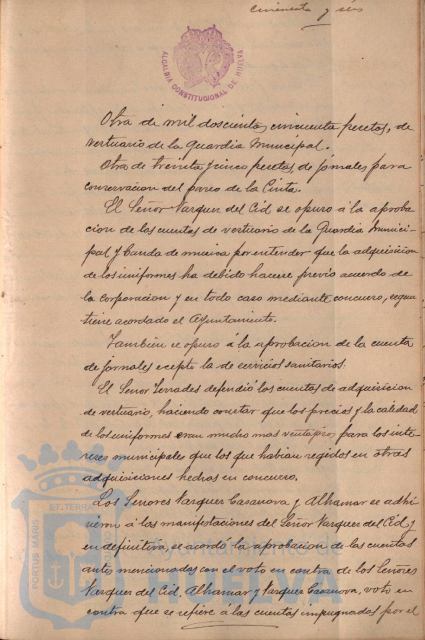 cincuenta y seis
ALCALDIA CONSTITUCIONAL DE HUELVA
Otra de mil doscientas cincuenta pesetas, de
vertuario de la Guardia Municipal.
Otra de treinta y cinco pesetas, de jornales para
conservacion del paseo de la Cinta.
El Señor Vazquez del Cid se opuso á la aproba
cion de las cuentas de vertuario de la Guardia Munici
pal y Banda de musica, por entender que la adquisicion
de los uniformes ha debido hacerse previo acuerdo de
la corporacion y en todo caso mediante concurso, segun
tiene acordado el Ayuntamiento.
Tambien se opuso á la aprobacion de la cuenta
de jornales ecepto la de servicios sanitarios.
El Señor Terrades defendió las cuentas de adquisicion
de vertuario, haciendo constar que los precios y la calidad
de los uniformes eran mucho mas ventajosos para los inte
reses municipales que los que habian regidos en otras
adquisiciones hechas en concurso.
Los Señores Vazquez Casanova y Alhamar se adhi
rieron á las manifestaciones del Señor Vazquez del Cid, y
en definitiva, se acordó la aprobacion de las cuentas
antes mencionadas con el voto en contra de los Señores
Vazquez del Cid, Alhamar y Vazquez Casanova, voto en
contra que se refiere á las cuentas impugnadas por el
PORTUS MARIS
ET TERRAE
Ayuntamiento de
HUELVA